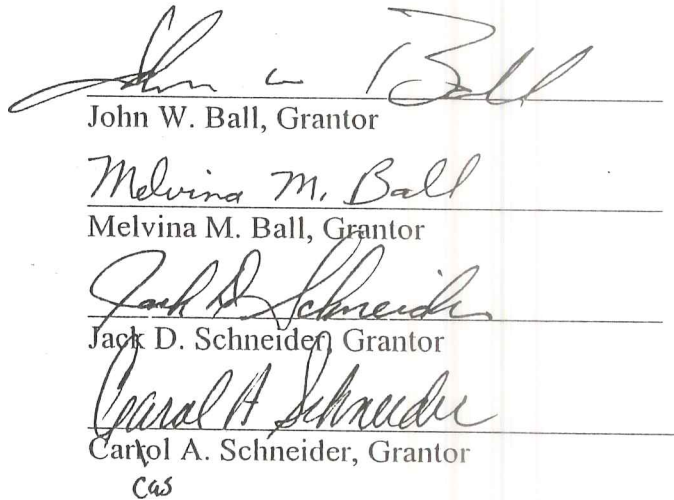 John W Ball
John W. Ball, Grantor
Melvina M. Ball
Melvina M. Ball, Grantor
Jack D Schneider
Jack D. Schneider, Grantor
Carol A Schneider
Carrol A. Schneider, Grantor
cas